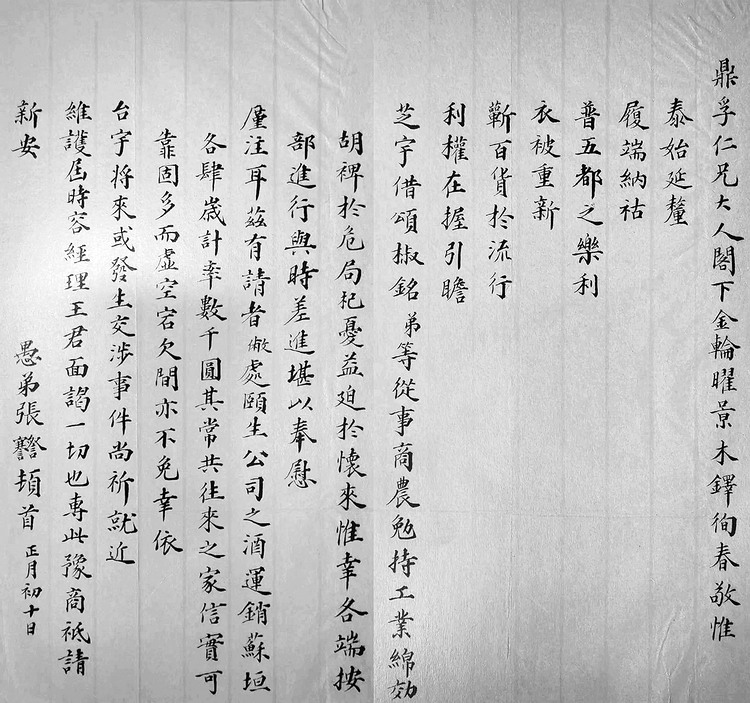 鼎孚仁兄大人閣下金輪曜景木鐸徇春敬惟
泰始延釐
履端納祜
普五都之樂利
衣被重新
蘄百貨於流行
利權在握引瞻
芝宇借頌椒銘弟等從事商農勉持工業綿効
胡裨於危局祀憂益迫於懷來惟幸各端按
部進行與時差進堪以奉慰
廑注耳茲有請者敝處頤生公司之酒運銷蘇垣
各肆歲計率數千圓其常共往來之家信實可
靠固多而虛空宕欠間亦不免幸依
台宇將來或發生交涉事件尚祈就近
維護屆時容經理王君面謁一切也專此豫商祗請
新安
愚弟張謇詧頓首 正月初十日